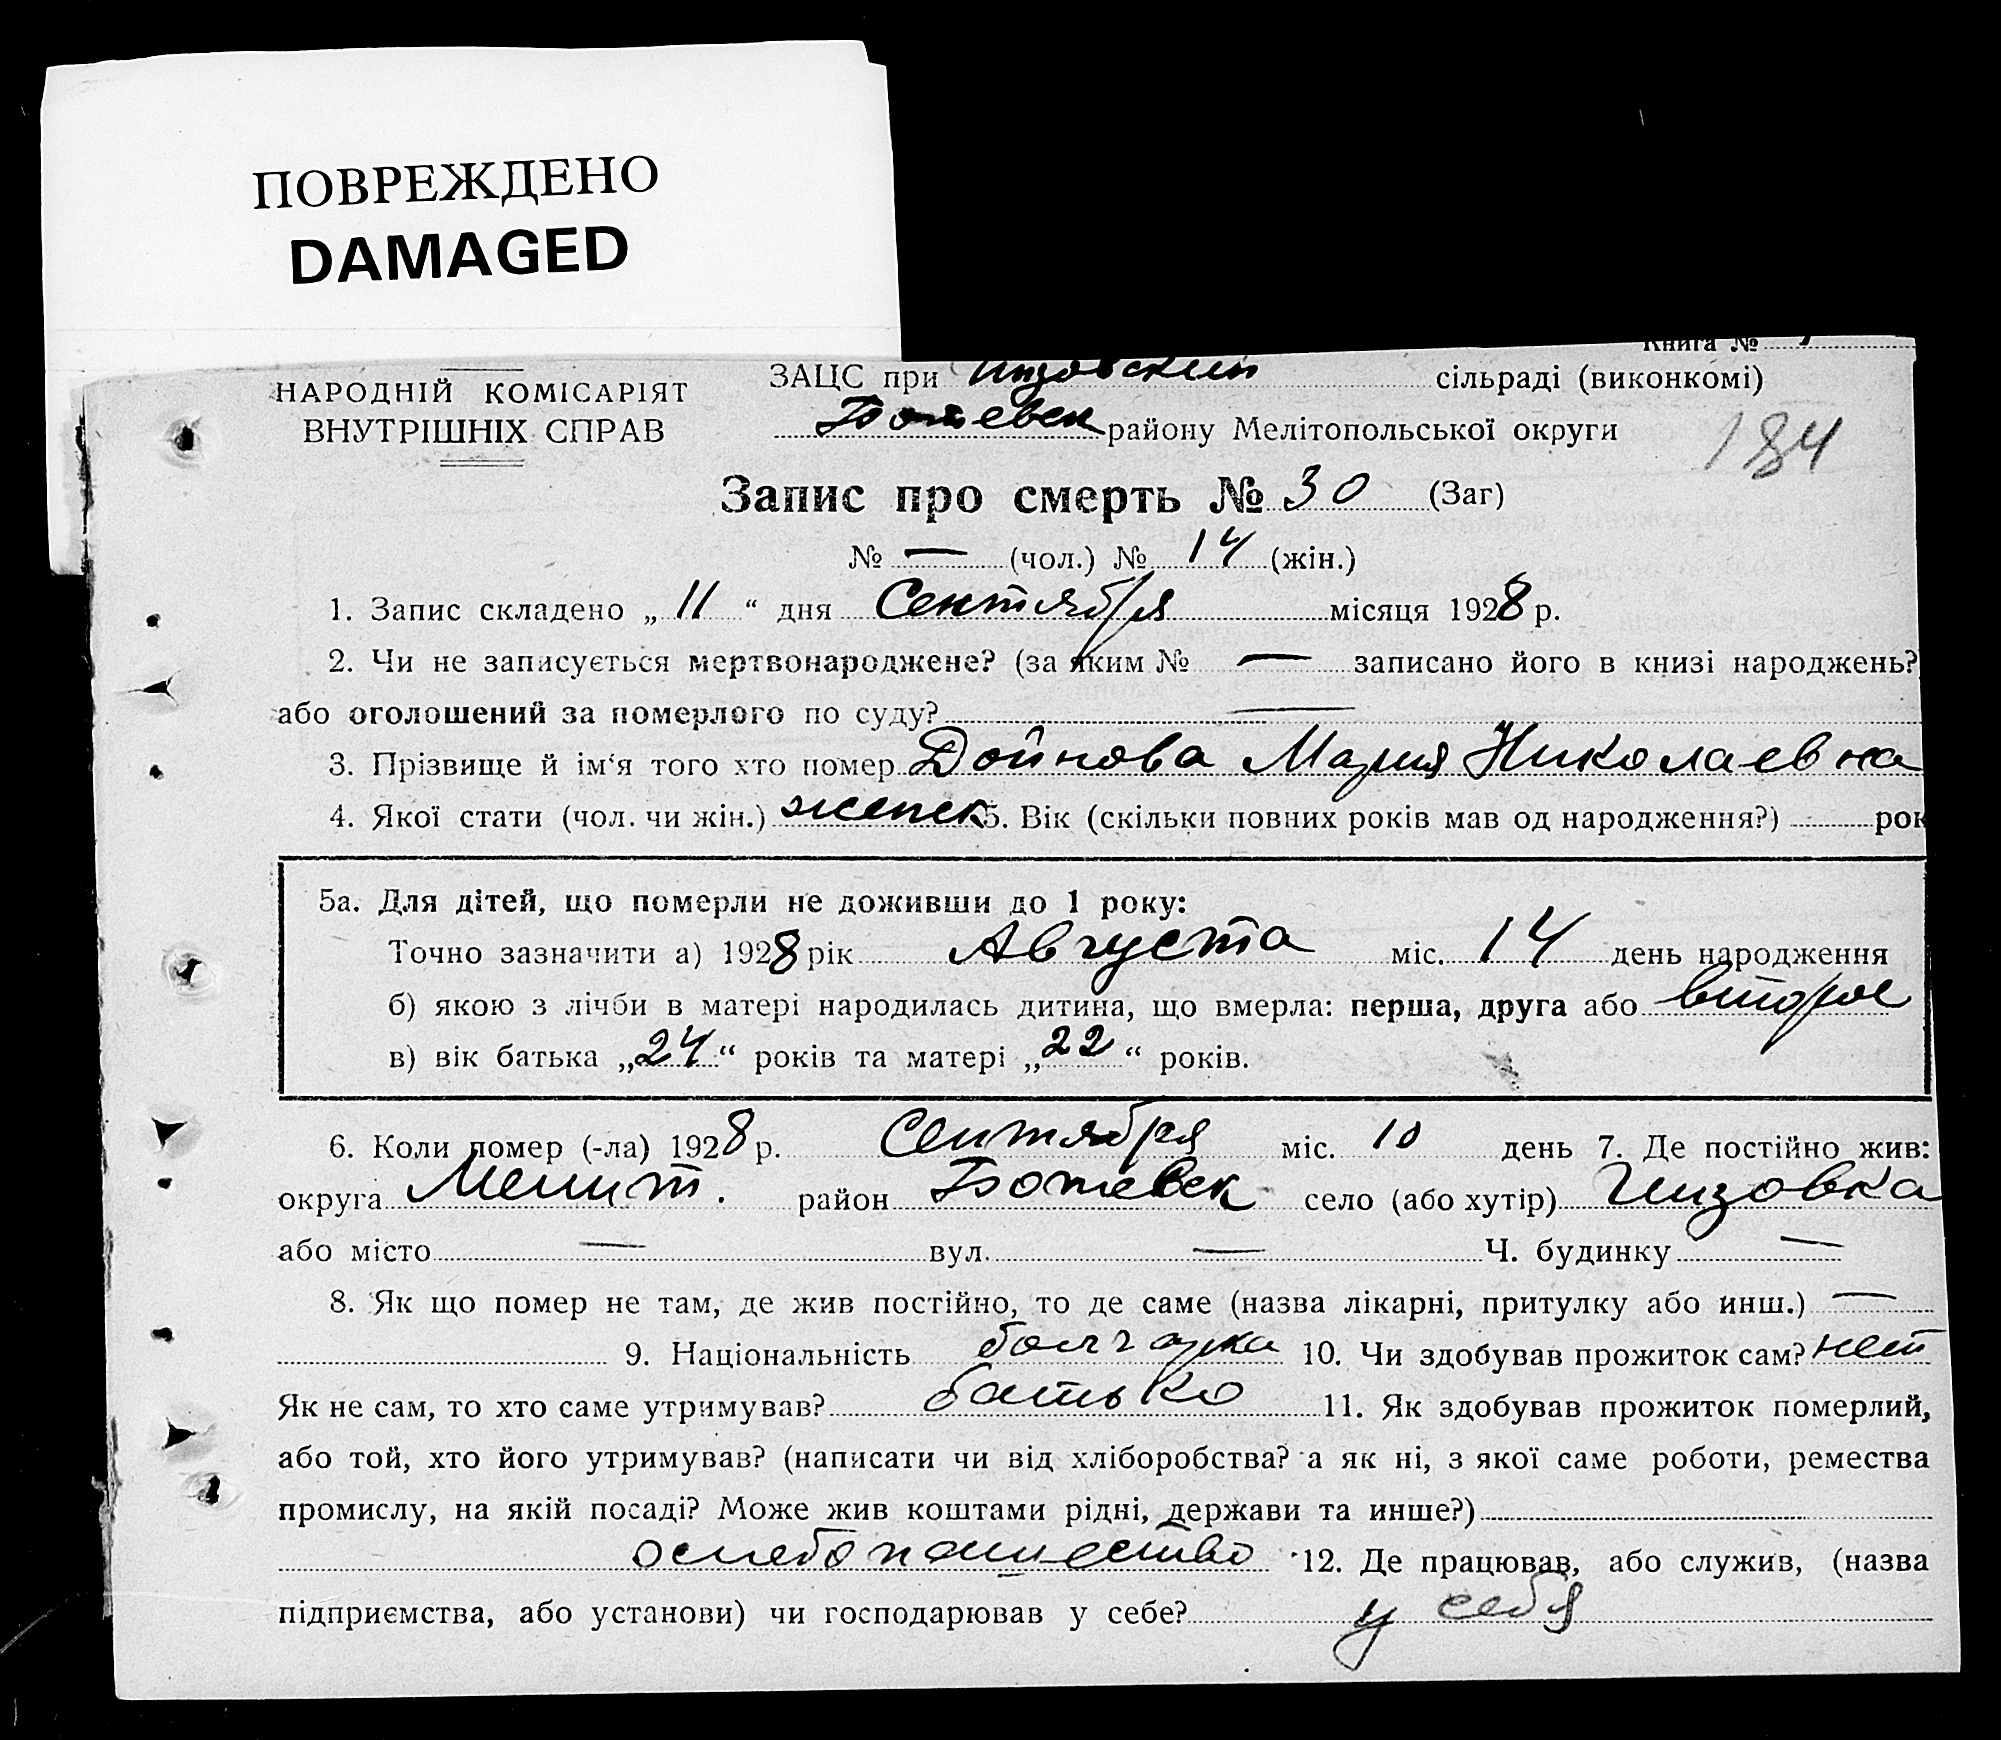 ПОВРЕЖДЕНО
DAMAGED
Книга №
НАРОДНІЙ КОМІСАРІЯТ
ВНУТРІШНІХ СПРАВ
ЗАЦС при Гизовский сільраді (виконкомі)
Ботиевск району Мелітопольської округи
184
Запис про смерть № 30 (Заг)
№ — (чол.) № 14 (жін.)
1. Запис складено „ 11 “ дня Сентября місяця 1928 р.
2. Чи не записується мертвонароджене? (за яким № — записано його в книзі народжень?
або оголошений за померлого по суду? —
3. Прізвище й ім‘я того хто помер Дойнова Мария Николаевна
4. Якої стати (чол. чи жін.) женск 5. Вік (скільки повних років мав од народження?) рок
5а. Для дітей, що померли не доживши до 1 року:
Точно зазначити а) 1928 рік Августа міс. 14 день народження
б) якою з лічби в матері народилась дитина, що вмерла: перша, друга або второе
в) вік батька „24“ років та матері „22“ років.
6. Коли помер (-ла) 1928 р. Сентября міс. 10 день 7. Де постійно жив:
округа Мелит. район Ботиевск село (або хутір) Гизовка
або місто — вул. — Ч. будинку —
8. Як що помер не там, де жив постійно, то де саме (назва лікарні, притулку або инш.) —
9. Національність болгарка 10. Чи здобував прожиток сам? нет
Як не сам, то хто саме утримував? батько 11. Як здобував прожиток померлий,
або той, хто його утримував? (написати чи від хліборобства? а як ні, з якої саме роботи, ремества
промислу, на якій посаді? Може жив коштами рідні, держави та инше?)
12. Де працював, або служив, (назва
підприємства, або установи) чи господарював у себе? у себя